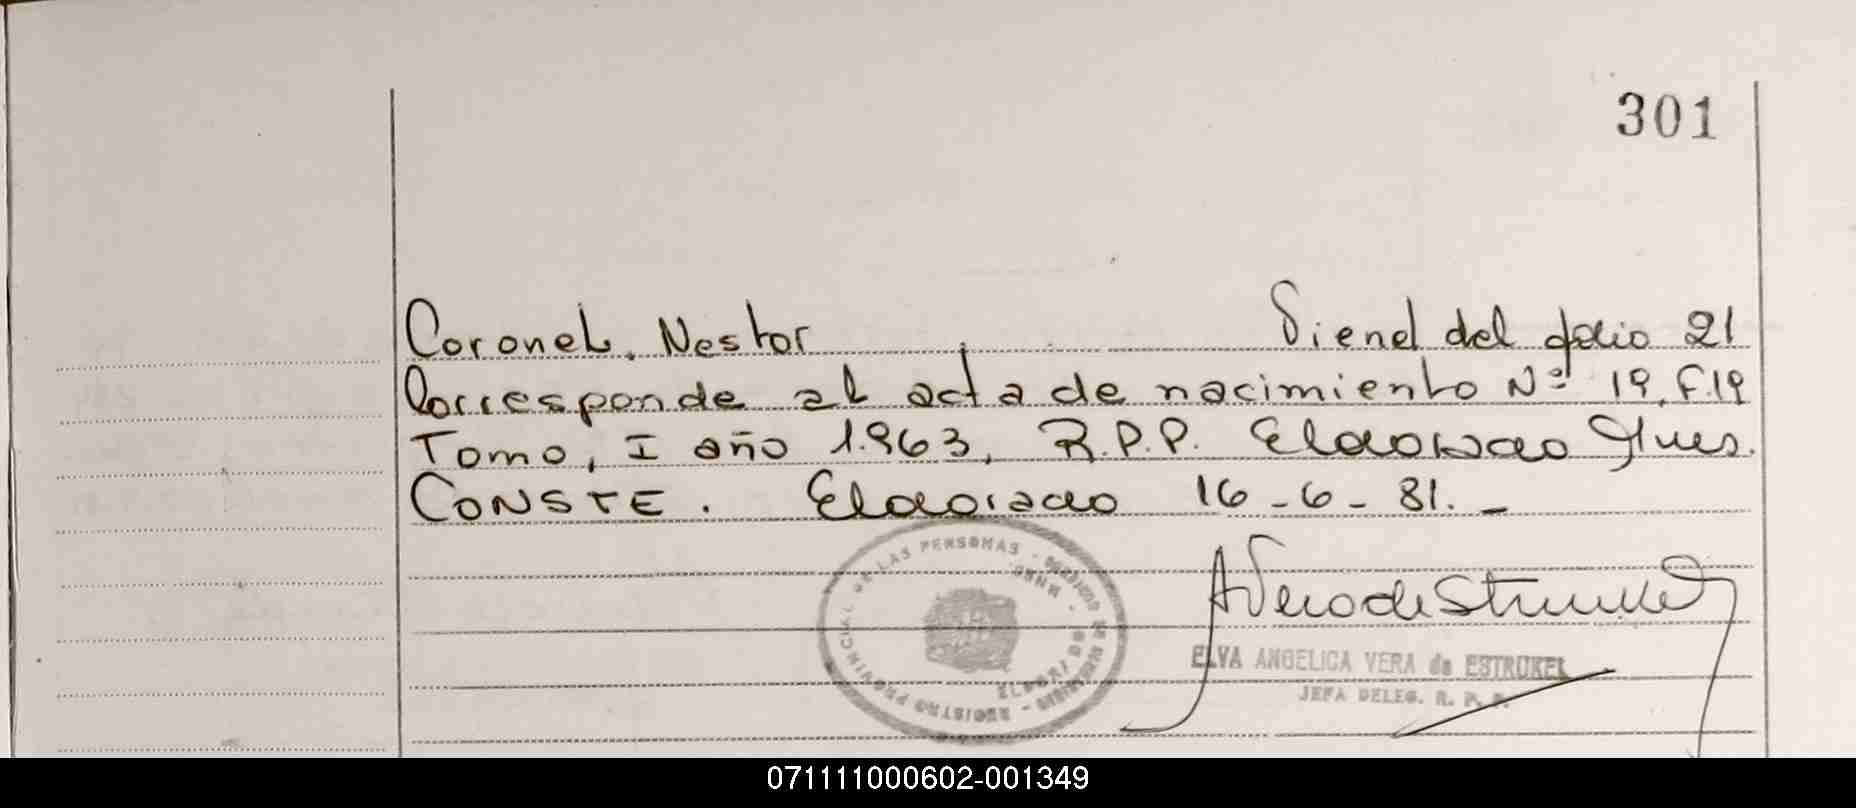 301
Coronel, Nestor Viene del folio 21
Corresponde al acta de nacimiento Nº 19, F.19
Tomo, I año 1.963, R.P.P. Eldorado Mnes.
CONSTE. Eldorado 16-6-81.-
REGISTRO PROVINCIAL DE LAS PERSONAS
MNES.
ELDORADO
AVera de Estrukel
ELVA ANGELICA VERA de ESTRUKEL
JEFA DELEG. R. P. P.
071111000602-001349